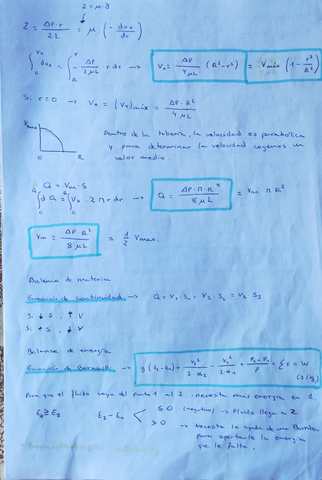 Z = μ·γ
Z = ΔP·r / 2L = μ (- dvx / dr)
∫₀^Vx dvx = ∫_R^r - ΔP / 2μL r dr → Vx = ΔP / 4μL (R² - r²) = Vmáx (1 - r² / R²)
Si r = 0 → Vx = (Vx)máx = ΔP·R² / 4μL
Vmax
0 R
Dentro de la tubería, la velocidad es parabólica
y para determinar la velocidad cogemos un
valor medio
Q = Vm·S
∫₀^Q dQ = ∫₀^R Vx·2πr dr → Q = ΔP·π·R⁴ / 8μL = Vm πR²
Vm = ΔP·R² / 8μL = 1/2 Vmax.
Balance de materia
Ecuación de continuidad → Q = V₁ S₁ = V₂ S₂ = V₃ S₃
Si ↓ S, ↑ V
Si ↑ S, ↓ V
Balance de energía
Ecuación de Bernoulli → g (z₂ - z₁) + V₂² / 2·α₂ - V₁² / 2·α₁ + P₂ - P₁ / ρ + ΣF = W
(J/kg)
Para que el fluido vaya del punto 1 al 2, necesita más energía en 1.
E₁ ≥ E₂
E₂ - E₁ < ≤ 0 (negativo) → Fluido llega a 2
> 0 → Necesita la ayuda de una Bomba
para aportarle la energía
que le falta.